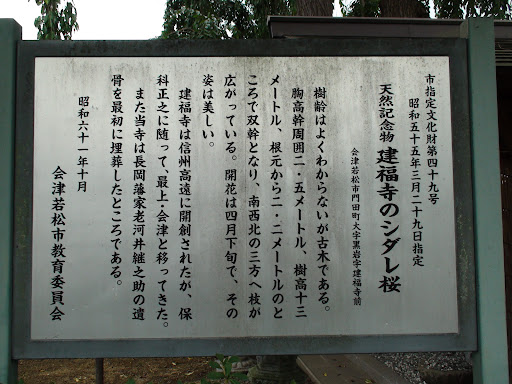 市指定文化財第四十九号
昭和五十五年三月二十九日指定
天然記念物 建福寺のシダレ桜
会津若松市門田町大字黒岩字建福寺前
樹齢はよくわからないが古木である。
胸高幹周囲二・五メートル、樹高十三
メートル、根元から二・二メートルのと
ころで双幹となり、南西北の三方へ枝が
広がっている。開花は四月下旬で、その
姿は美しい。
建福寺は信州高遠に開創されたが、保
科正之に随って、最上・会津と移ってきた。
また当寺は長岡藩家老河井継之助の遺
骨を最初に埋葬したところである。
昭和六十一年十月
会津若松市教育委員会